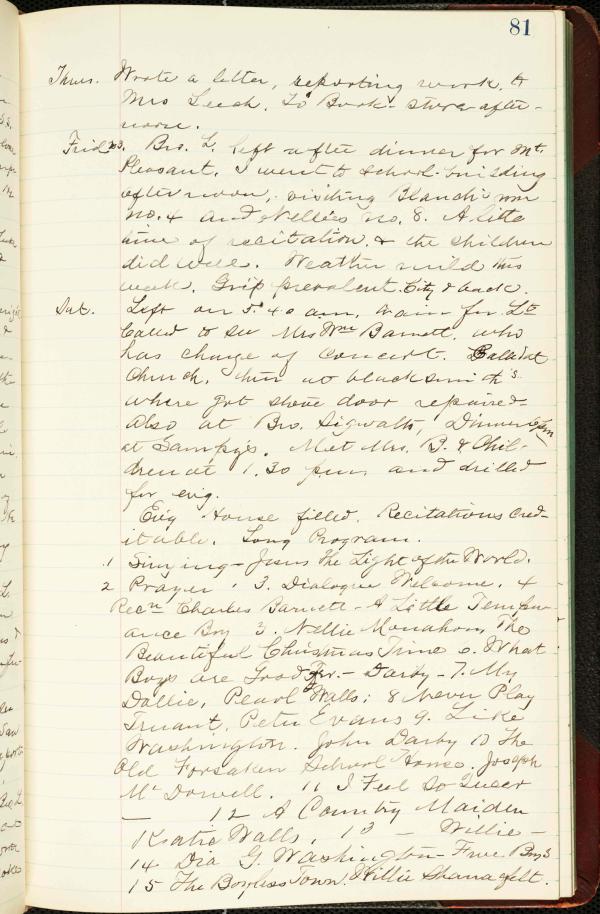 81
Thurs. Wrote a letter, reporting work, to
Mrs Leech. To Book-store after-
noon.
Frid 23. Bro. L. left after dinner for Mt.
Pleasant. I went to school-building
afternoon, visiting Blanch's room
no. 4 and Nellie's no. 8. A little
time of recitation, & the children
did well. Weather mild this
week. Grip prevalent. City &
Sat. Left on 5.40 a.m. train for
Called to see Mrs Wm Barnett, who
has charge of Concert.
Church, then at blacksmith's
where got stove door repaired-
Also at Bro. Sigwalts, Dinner
at Sampys. Met Mrs. B. & Chil-
dren at 1.30 p.m. and drilled
for evig.
Evig House filled. Recitations cred-
itable. Long Program.
1 Singing - Jesus the Light of the World.
2 Prayer. 3. Dialogue Welcome. 4
Recn Charles Barnett - A Little Temper-
ance Boy 5. Nellie Monahon, The
Beautiful Christmas Time 6. What
Boys are Good For. - Darby - 7. My
Dollie, Pearl Walls; 8 Never Play
Truant, Peter Evans 9. Like
Washington. John Darby 10 The
Old Forsaken School House. Joseph
McDowell. 11 I Feel So Queer
— 12 A Country Maiden
Katie Walls, 13 — Willie —
14 Dia G. Washington - Five Boys
15 The Boyless Town. Willie Shanafelt.